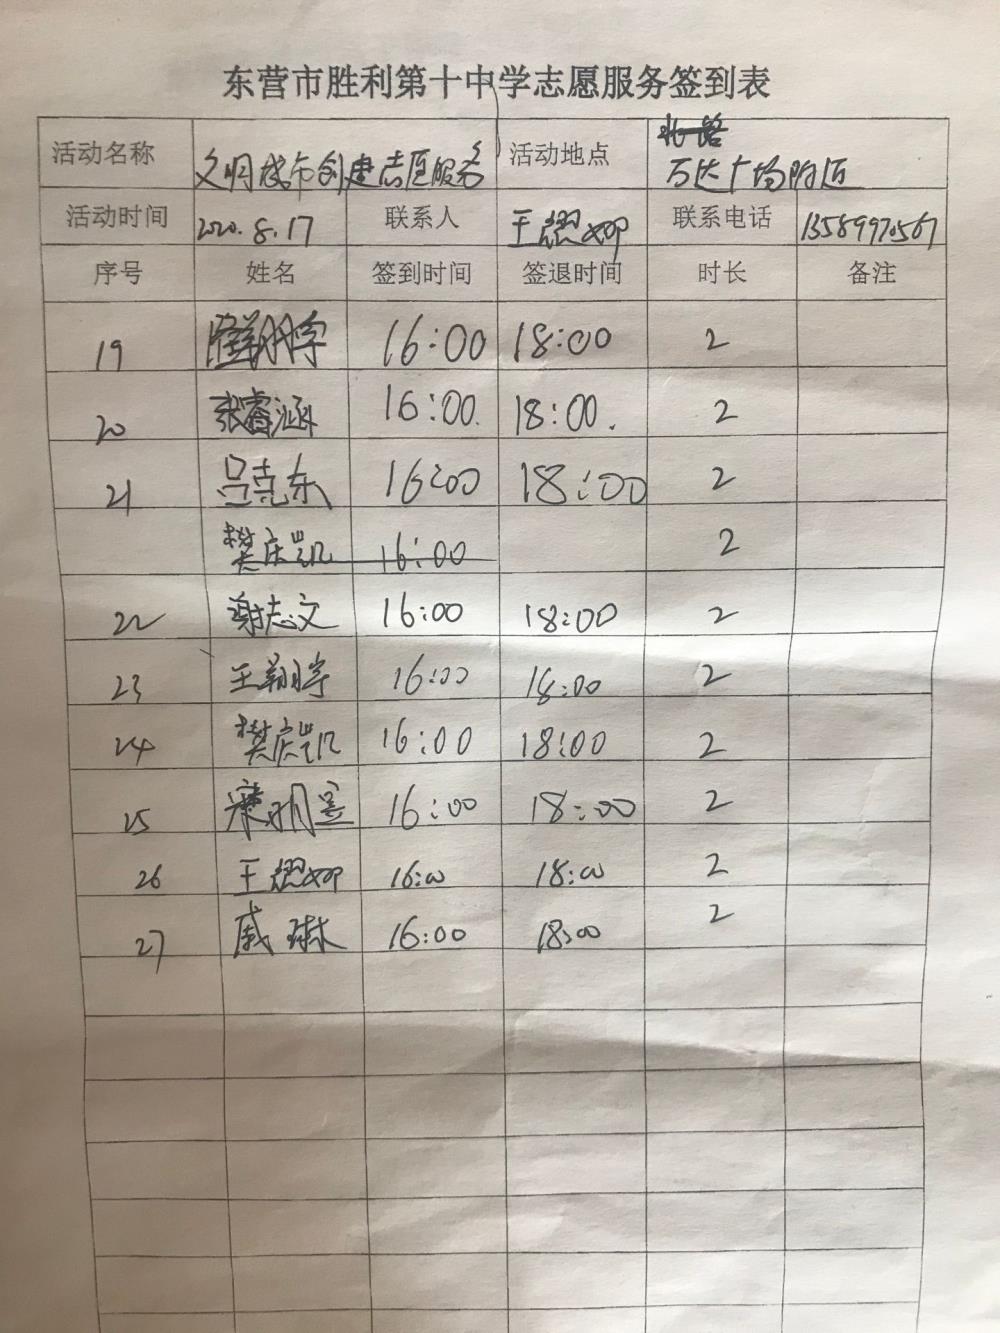 东营市胜利第十中学志愿服务签到表
活动名称 文明城市创建志愿服务 活动地点 北一路 万达广场附近
活动时间 2020.8.17 联系人 王耀卿 联系电话 13589970567
序号 姓名 签到时间 签退时间 时长 备注
19 翔宇 16:00 18:00 2
20 张睿涵 16:00. 18:00. 2
21 吕克东 16:00 18:00 2
樊庆凯 16:00 2
22 谢志文 16:00 18:00 2
23 王翔宇 16:00 18:00 2
24 樊庆凯 16:00 18:00 2
25 明昱 16:00 18:00 2
26 王耀卿 16:00 18:00 2
27 戚琳 16:00 18:00 2